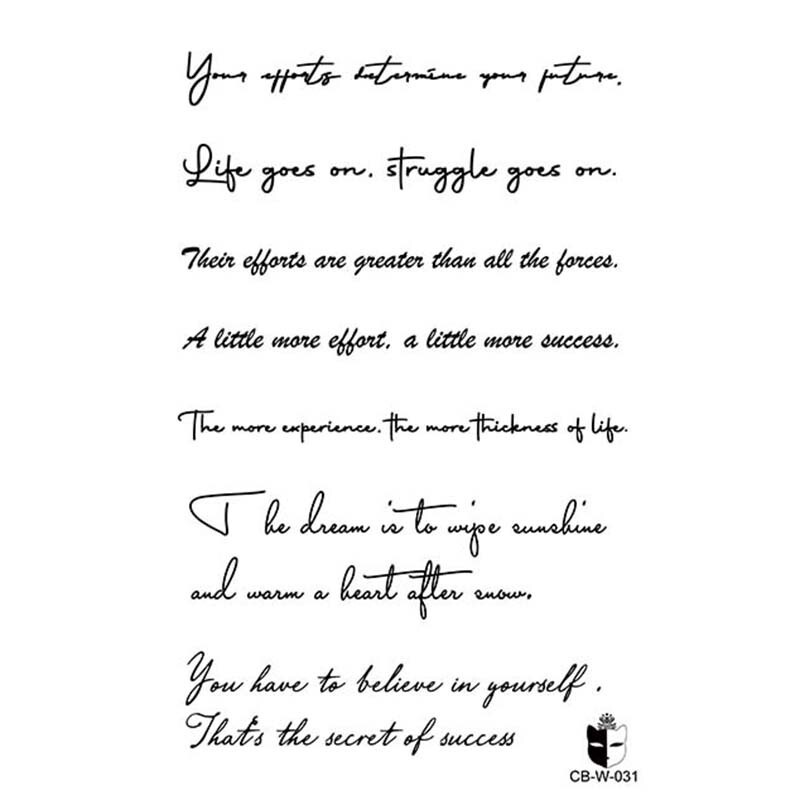 Your efforts determine your future.
Life goes on. struggle goes on.
Their efforts are greater than all the forces.
A little more effort, a little more success.
The more experience. the more thickness of life.
The dream is to wipe sunshine
and warm a heart after snow.
You have to believe in yourself .
That's the secret of success
CB-W-031